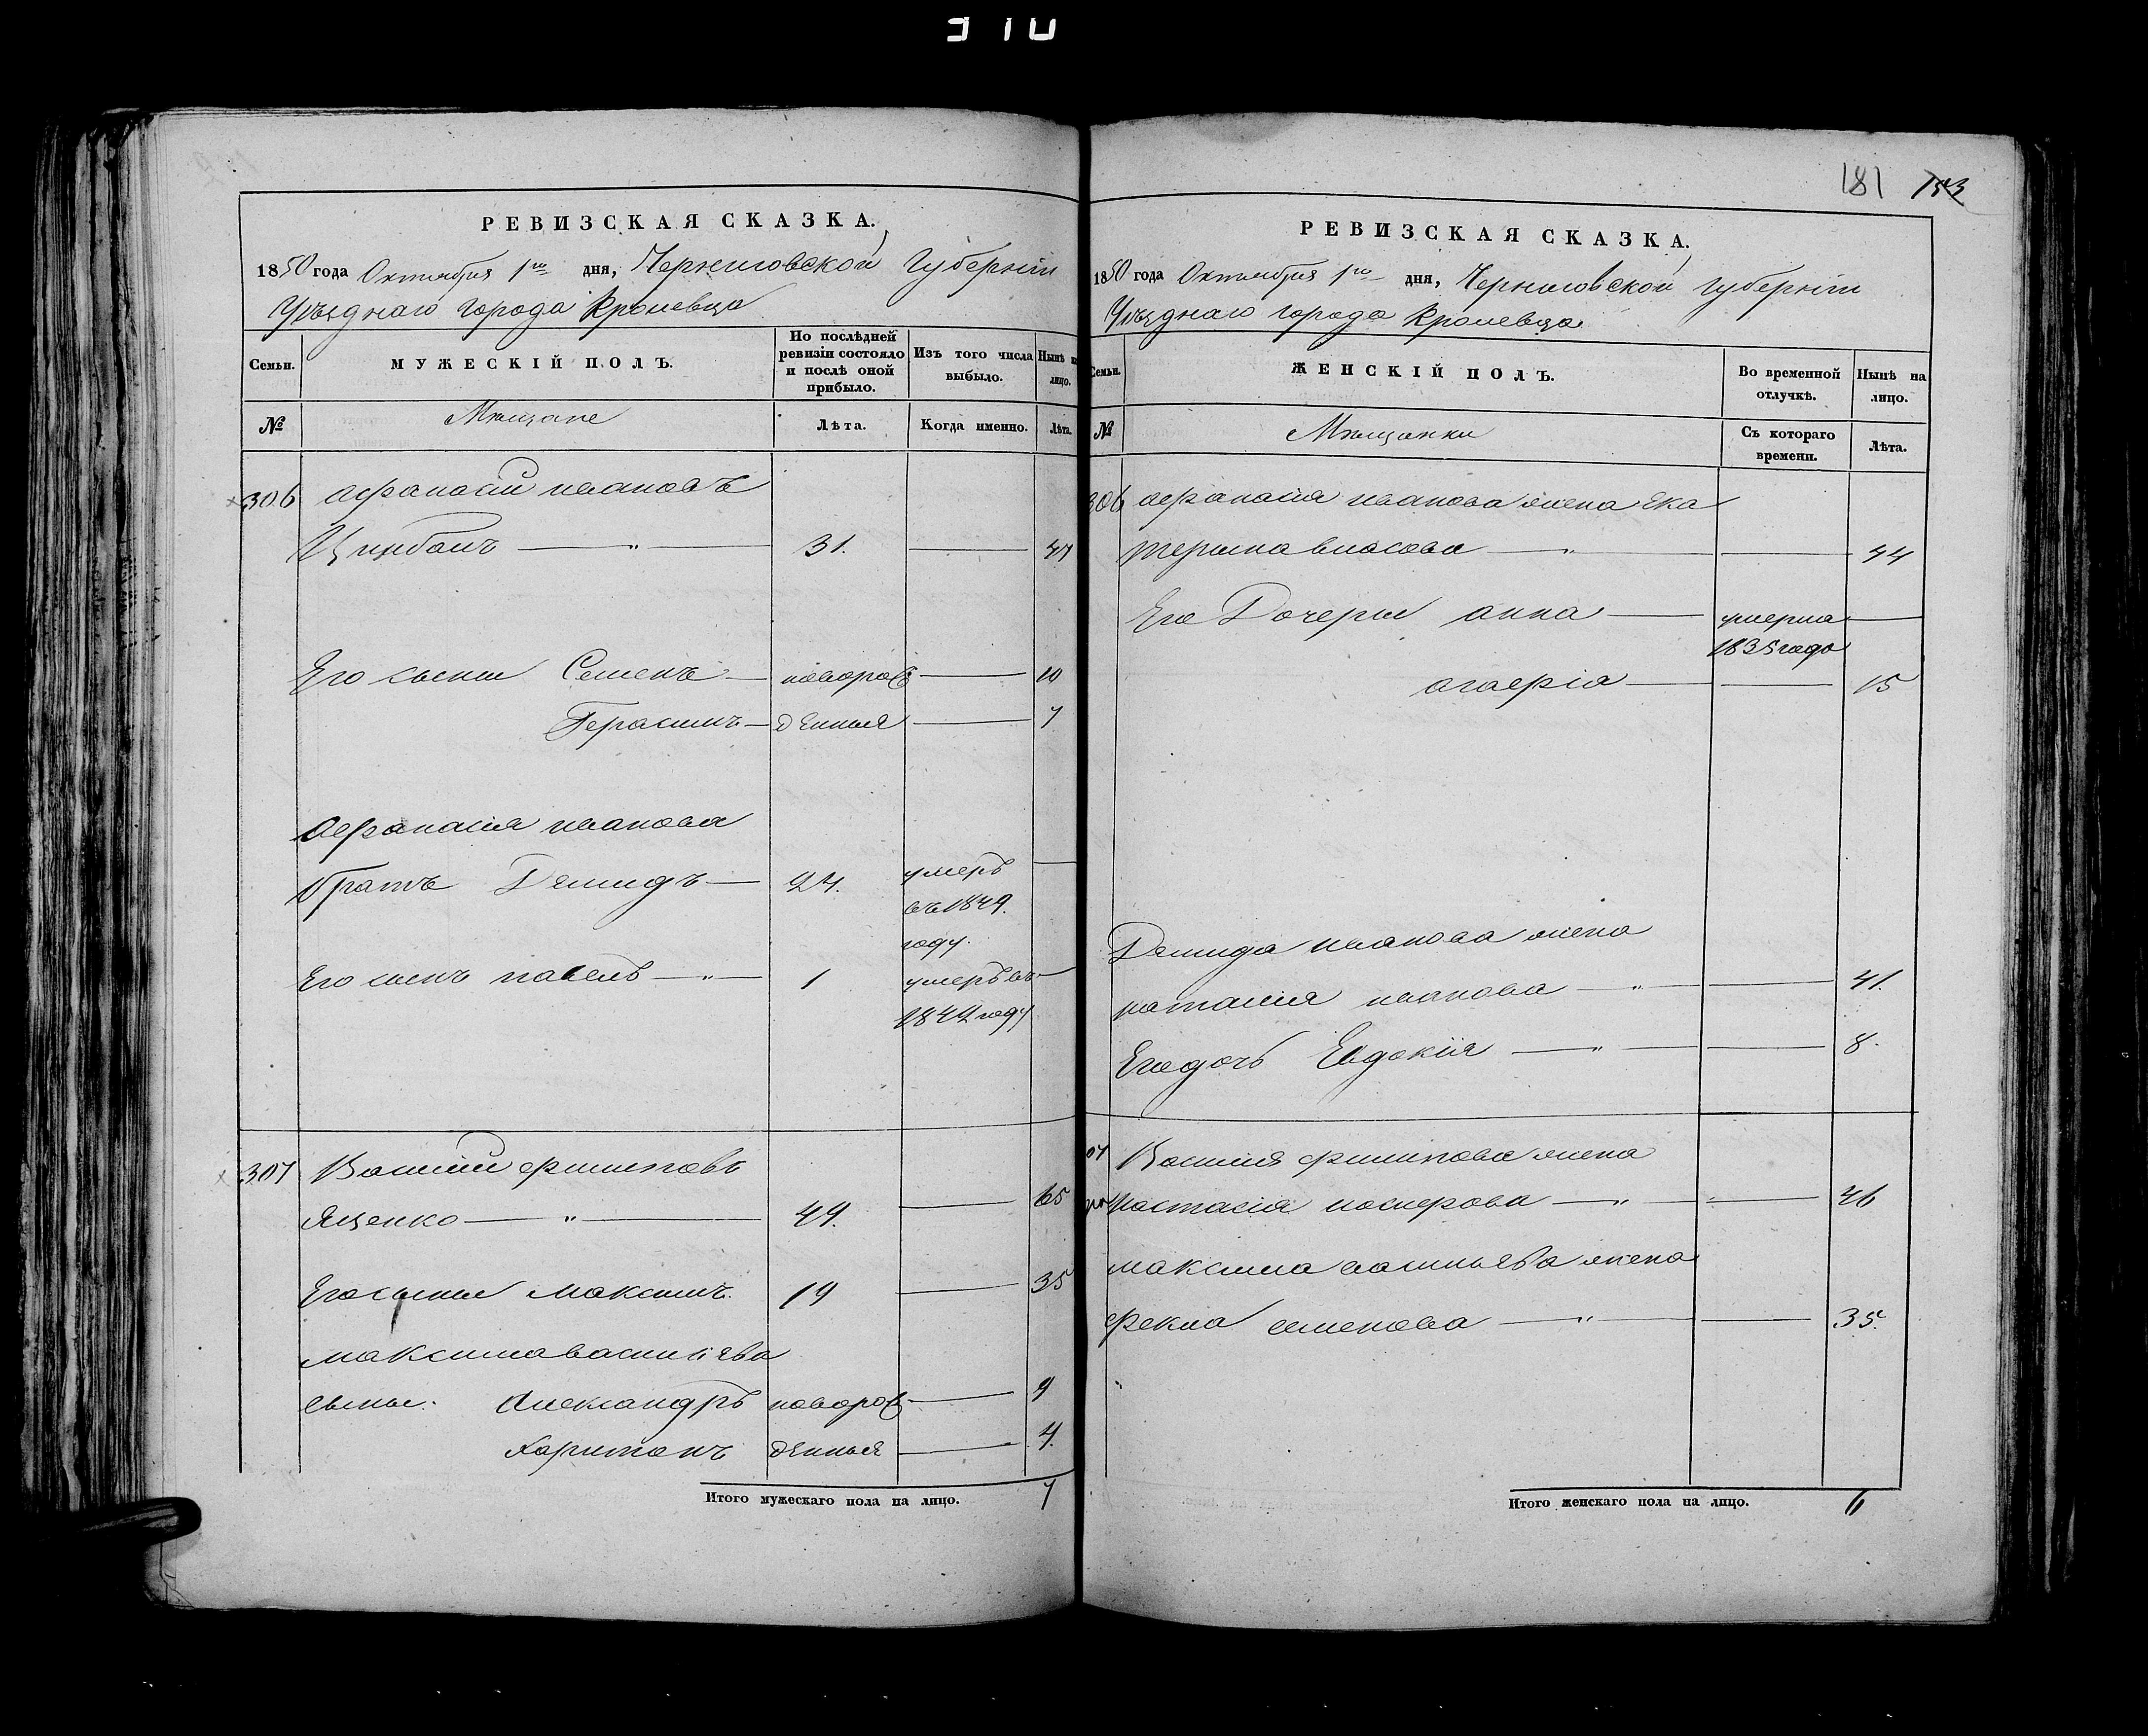 310
РЕВИЗСКАЯ СКАЗКА.
1850 года Октября 1го дня, Черниговской Губернiи
Уѣзднаго города Кролевца
Семьи.
МУЖЕСКІЙ ПОЛЪ.
По послѣдней ревизіи состояло и послѣ оной прибыло.
Изъ того числа выбыло.
Нынѣ на лицо.
№
Мѣщане
Лѣта.
Когда именно.
Лѣта.
306 Афанасій Ивановъ
Цинбалъ — " — 31. — 47
Его сыны Семенъ — новорож — 10
Герасимъ — денныя — 7
Афанасія Иванова
братъ Демидъ — 24. умеръ —
въ 1849.
году.
Его сынъ Павелъ — " — 1 умеръ въ —
1842 году
307 Василій Филиповъ
Яценко — " — 49. — 65
Его сыны Максимъ. 19 — 35
Максима Васильева
сыны. Александръ новорож — 9
Харитонъ денныя — 4.
Итого мужескаго пола на лицо. 7
181 153
РЕВИЗСКАЯ СКАЗКА,
1850 года Октября 1го дня, Черниговской Губернiи
Уѣзднаго города Кролевца
Семьи.
ЖЕНСКІЙ ПОЛЪ.
Во временной отлучкѣ.
Нынѣ на лицо.
№
Мѣщанки
Съ котораго времени.
Лѣта.
306 Афанасія Иванова жена Ека
терина Власова — " — 44
Его Дочери Анна — умерла —
1835 года
Агафія — 15
Демида Иванова жена
Наталія Иванова — " — 41.
Его дочь Евдокія — " — 8.
07 Василія Филипова жена
Настасія — " — 46
Максима Васильева жена
Фекла Семенова — " — 35.
Итого женскаго пола на лицо. 6